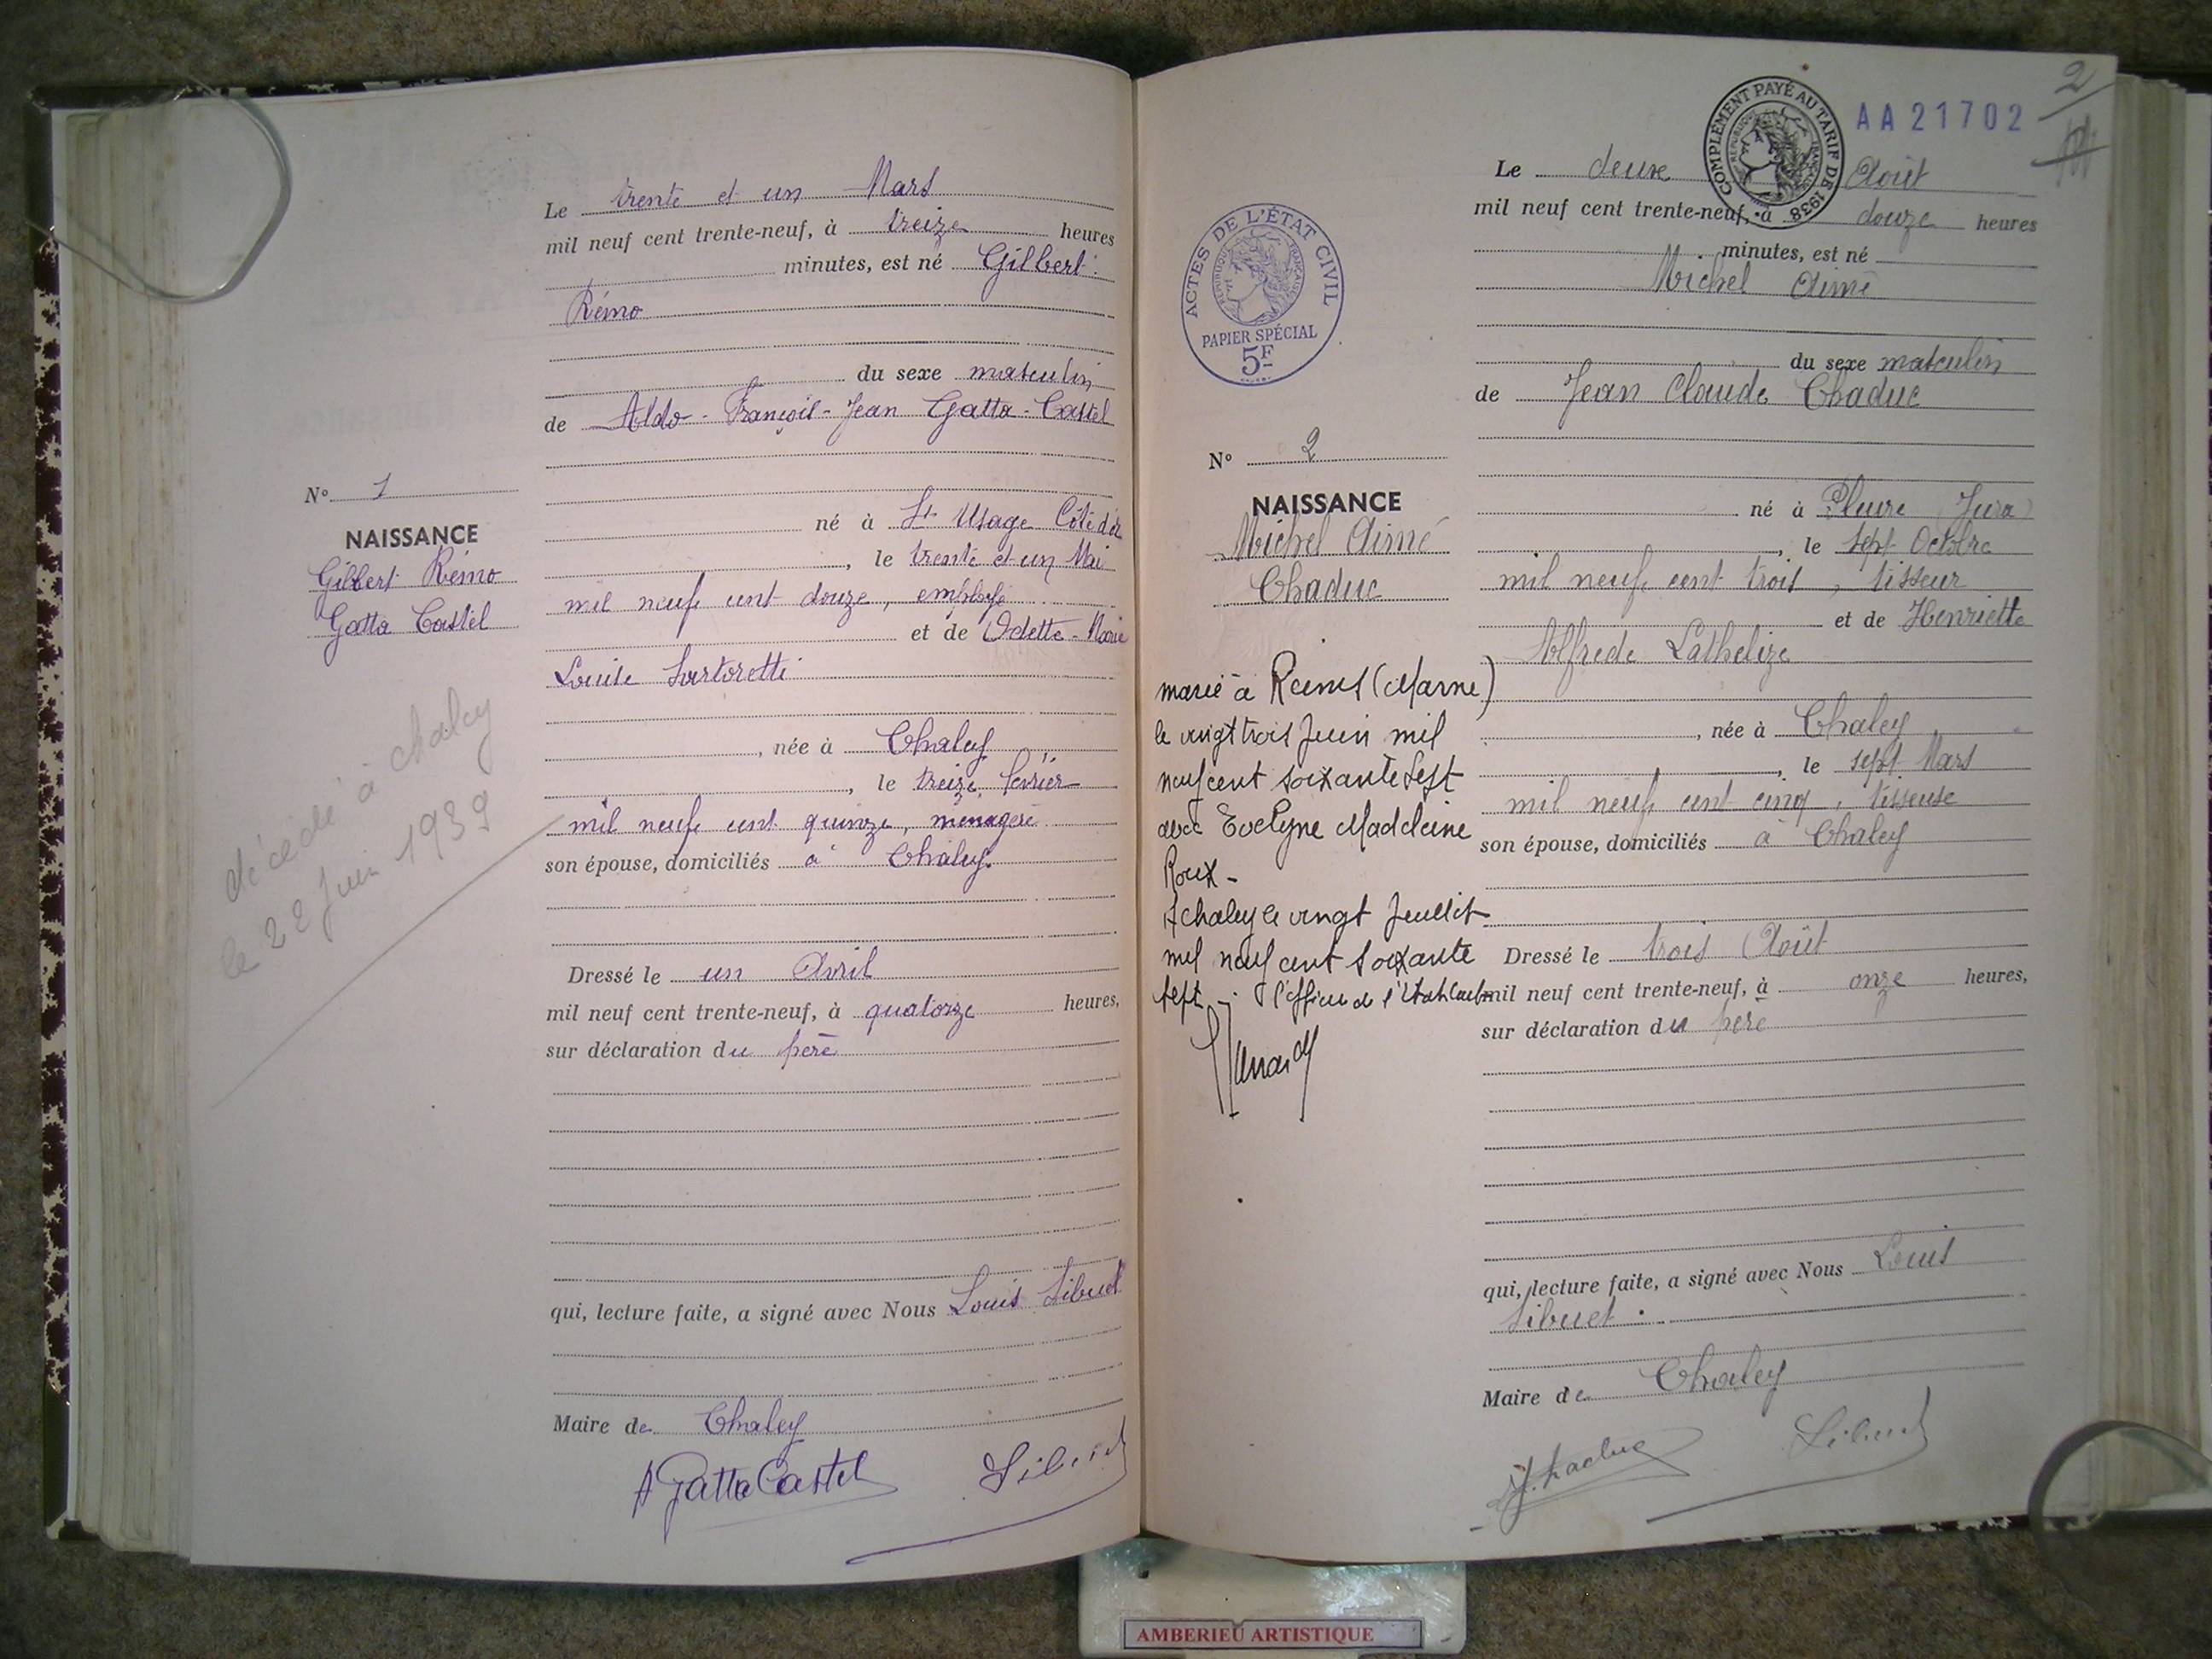 Le trente et un Mars
mil neuf cent trente-neuf, à treize heures
minutes, est né Gilbert
Rémo
du sexe masculin
de Aldo - François - Jean Gatto - Castel
né à St Usage Côte d'or
, le trente et un Mai
mil neuf cent douze, employé
et de Odette - Marie
Louise Sartoretti
, née à Chaley
, le treize février
mil neuf cent quinze, ménagère
son épouse, domiciliés à Chaley
Dressé le un Avril
mil neuf cent trente-neuf, à quatorze heures,
sur déclaration du père
qui, lecture faite, a signé avec Nous Louis Sibuet
Maire de Chaley
A Gatto Castel Sibuet
N° 1
NAISSANCE
Gilbert Rémo
Gatto Castel
décédé à Chaley
le 22 Juin 1939
2
AA 21702
COMPLÉMENT PAYÉ AU TARIF DE 1938
RÉPUBLIQUE FRANÇAISE
Le deux Août
mil neuf cent trente-neuf, à douze heures
minutes, est né
Michel Aimé
du sexe masculin
de Jean Claude Chaduc
né à Pleure Jura
, le sept Octobre
mil neuf cent trois, tisseur
et de Henriette
Alfrede Lathelize
, née à Chaley
, le sept Mars
mil neuf cent cinq, tisseuse
son épouse, domiciliés à Chaley
Dressé le trois Août
mil neuf cent trente-neuf, à onze heures,
sur déclaration du père
qui, lecture faite, a signé avec Nous Louis
Sibuet
Maire de Chaley
J. Chaduc Sibuet
ACTES DE L'ÉTAT CIVIL
RÉPUBLIQUE FRANÇAISE
PAPIER SPÉCIAL
5F
N° 2
NAISSANCE
Michel Aimé
Chaduc
marié à Reims (Marne)
le vingt trois Juin mil
neuf cent soixante sept
avec Evelyne Madeleine
Roux -
A chaley le vingt Juillet
mil neuf cent soixante
sept - l'officier de l'Etat Civil
AMBERIEU ARTISTIQUE